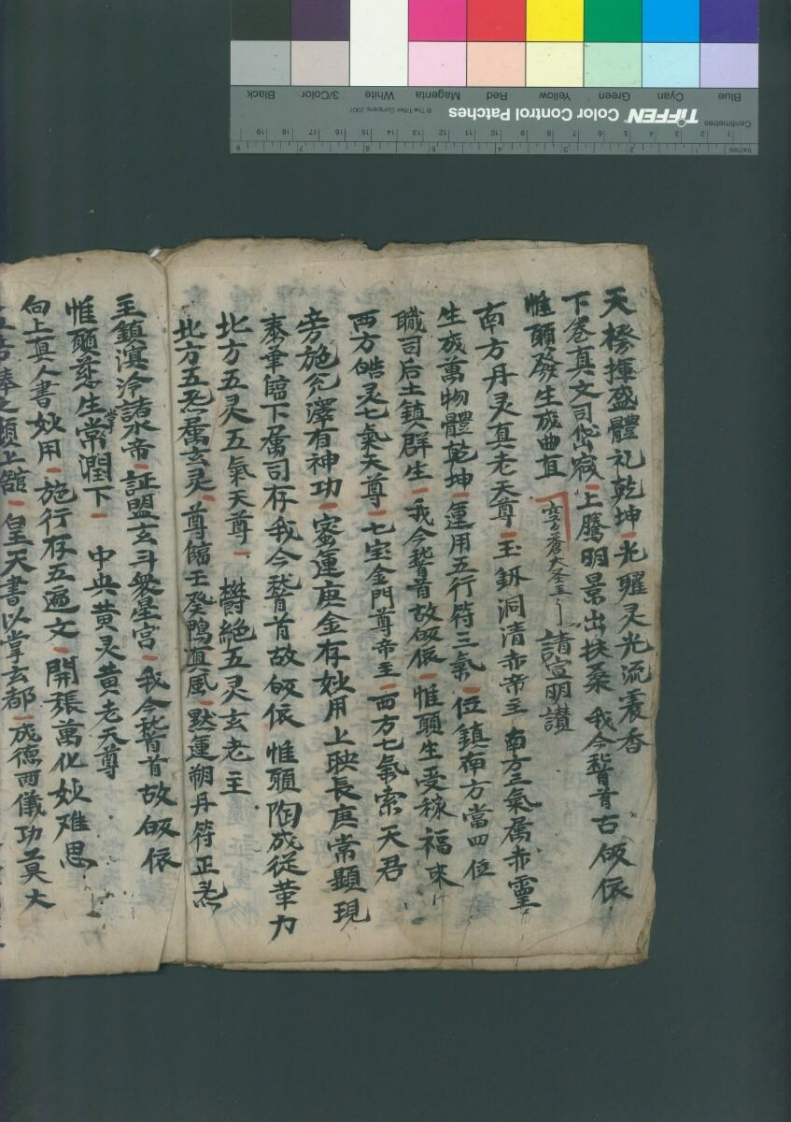 天 揮盛體礼乾坤 光曜灵光流裊香
下卷真文司 寂 上騰明景出扶桑 我今稽首古皈依
惟願發生成曲直 請宣明讃
南方丹灵真老天尊 玉 洞清赤帝主 南方三氣属赤靈
生成萬物體乾坤 運用五行符三氣 位鎮南方當四位
職司后土鎮群生 我今稽首故皈依 惟願生受稼福来
西方皓灵七氣天尊 七宝金門尊帝主 西方七氣索天君
旁施兊澤有神功 蜜運庚金存妙用 上映長庚常顯現
泰華舘下属司存 我今稽首故皈依 惟願陶成從革力
北方五灵五氣天尊 欎絶五灵玄老主
北方五炁属玄灵 尊舘壬癸 風 默運朔丹符正炁
主鎮溟泠諸水帝 証盟玄斗衆星宮 我今稽首故皈依
惟願慈生常潤下 中央黄灵黄老天尊
向上真人書妙用 施行存五遍文 開張萬化妙难思
皇天書以掌玄都 成德兩儀功莫大
Blue Cyan Green Yellow Red Magenta White 3/Color Black
TIFFEN Color Control Patches
© The Tiffen Company, 2007
Centimetres
Inches
1 2 3 4 5 6 7 8 9 10 11 12 13 14 15 16 17 18 19